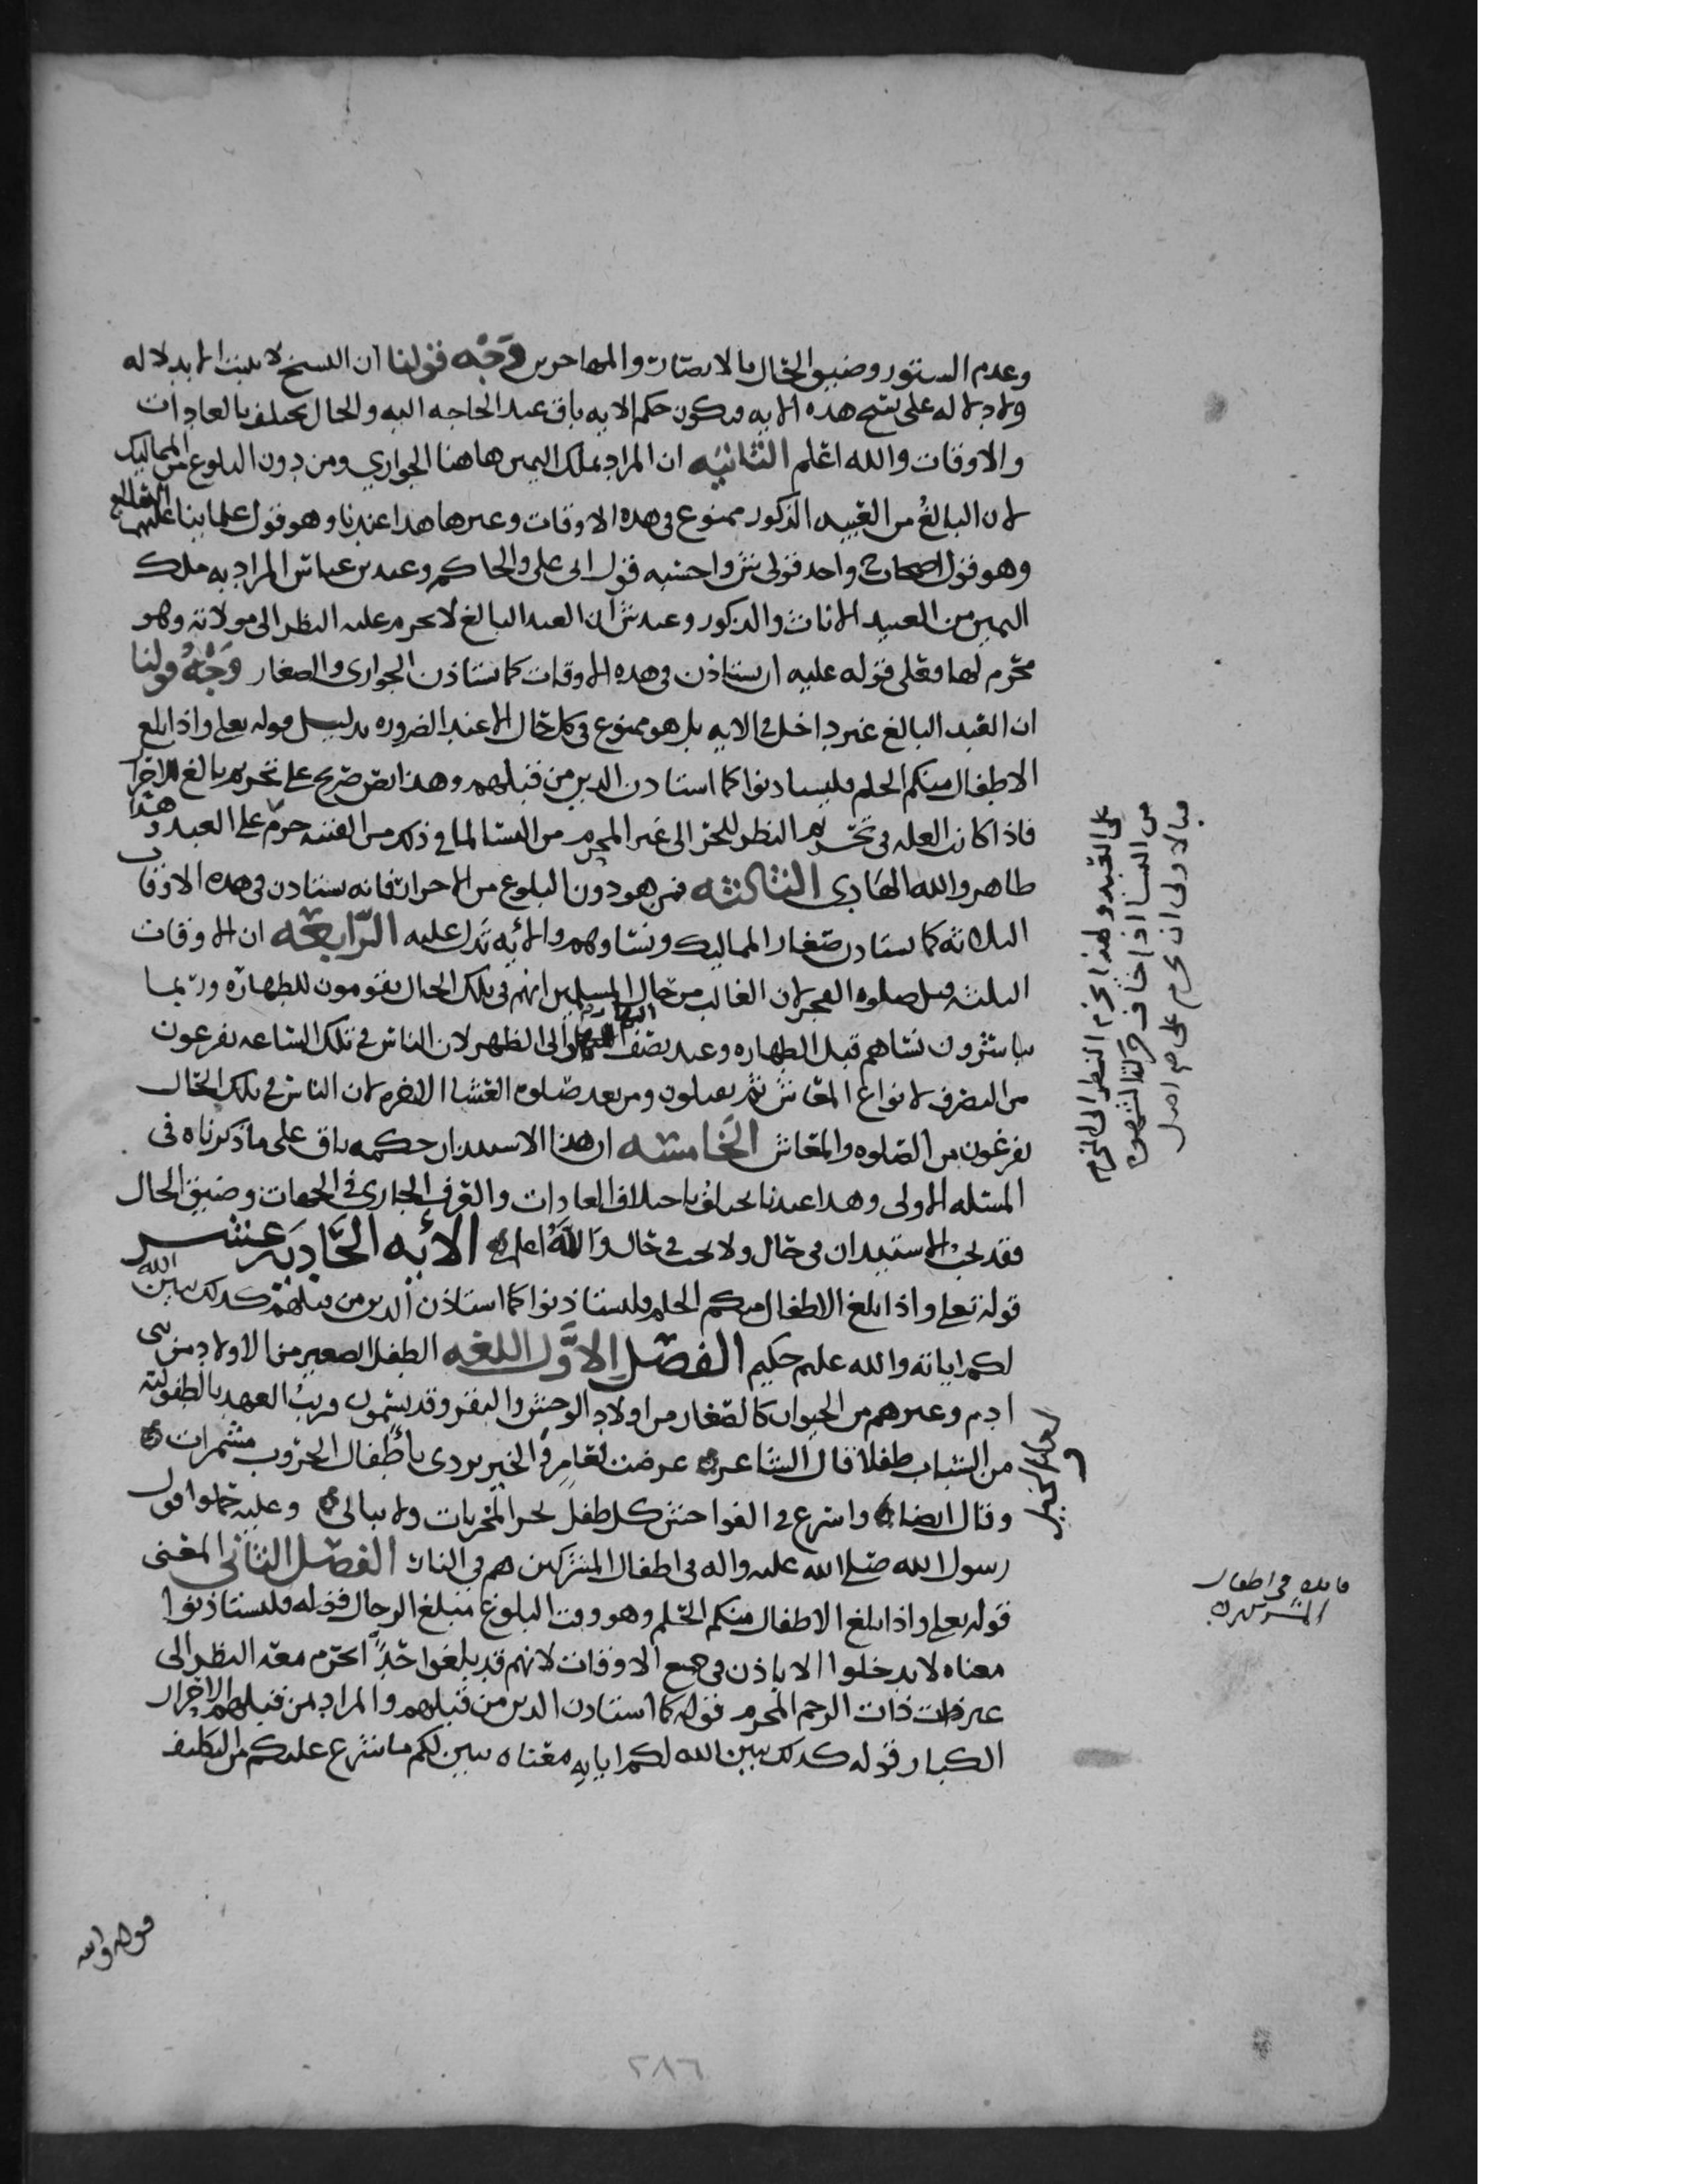 وعدم الستور وضيق الحال بالانصار والمهاجرين وَجْه قولنا ان النسخ لا يثبت الا بدلاله
ولا دلاله على نسخ هذه الايه فيكون حكم الايه باق عند الحاجه اليه والحال يختلف بالعادات
والاوقات والله اعلم الثانيه ان المراد بملك اليمين هاهنا الجواري ومن دون البلوغ من المماليك
لان البالغ من العبيد الذكور ممنوع في هذه الاوقات وغيرها هذا عندنا وهو قول علمائنا عليهم
وهو قول واحد قولي ش واحسبه قول ابى على والحاكم وعند بن عباس المراد به ملك
اليمين من العبيد الاناث والذكور وعند ش ان العبد البالغ لا يحرم عليه النظر الى مولاته وهو
محرم لها فعلى قوله عليه ان يستاذن فى هذه الاوقات كما يستاذن الجوارى والصغار وَجْهُ قولنا
ان العبد البالغ غير داخل في الايه بل هو ممنوع في كل حال الا عند الضروره بدليل قوله تعلى واذا بلغ
الاطفال منكم الحلم فليستاذنوا كما استاذن الذين من قبلهم وهذا نص صريح على تحريم بالغ الاحرار
فاذا كانت العله في تحريم النظر للحر الى غير المحرم من النسا لما في ذلك من الفتنه حرم على العبد وهذا
ظاهر والله الهادى الثالثه فمن هو دون البلوغ من الاحرار فانه يستاذن فى هذه الاوقات
الثلاثه كما يستاذن صغار المماليك ونساوهم والايه تدل عليه الرّابعه ان الاوقات
الثلثه قبل صلوه الفجر لان الغالب من حال المسلمين انهم فى تلك الحال يقومون للطهاره وربما
باشرون نساهم قبل الطهاره وعند نصف النهار الى الظهر لان الناس في تلك الساعه يفرغون
من التصرف لانواع المعاش ثم يقيلون ومن بعد صلوه العشا الاخره لان الناس في تلك الحال
يفرغون من الصلوه والمعاش الخامسه ان هذا الاستيذان حكمه باق على ما ذكرناه فى
المسئله الاولى وهذا عندنا يختلف باختلاف العادات والعرف الجارى في الجهات وضيق الحال
فقد يجب الاستيذان فى حال ولا يجب في حال والله اعلم الايه الحَاديَه عشر
قوله تعلى واذا بلغ الاطفال منكم الحلم فليستاذنوا كما استاذن الذين من قبلهم كذلك يبين الله
لكم اياته والله عليم حكيم الفصل الاوّل اللغه الطفل الصغير من الاولاد من بنى
ادم وغيرهم من الحيوان كالصغار من اولاد الوحش والبقر وقد يسمون قريب العهد بالطفوليه
من الشباب طفلا قال الشاعر عرضت لعامر والخيل تردى باطفال الحروب مشمرات
وقال ايضا واسرع في الفواحش كل طفل يجر المخزيات ولا يبالى وعليه حملوا قول
رسول الله صلى الله عليه واله فى اطفال المشركين هم فى النار الفصل الثانى المعنى
قوله تعلى واذا بلغ الاطفال منكم الحلم وهو وقت البلوغ مبلغ الرجال قوله فليستاذنوا
معناه لا يدخلوا الا باذن فى جميع الاوقات لانهم قد بلغوا حدًّا يحرم معه النظر الى
غير ذات الرحم المحرم قوله كما استاذن الذين من قبلهم والمراد من قبلهم الاحرار
الكبار قوله كذلك يبين الله لكم اياته معناه يبين لكم ما شرع عليكم من التكليف
على العبد ولهذا يحرم النظر الى المحرم
من النسا اذا خاف
فبالاولى ان يحرم على
فائده في اطفال
المشركين
قوله والله
٢٨٦